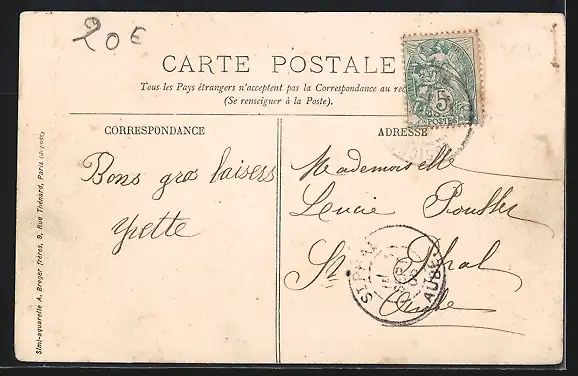 20€
CARTE POSTALE
Tous les Pays étrangers n'acceptent pas la Correspondance au
(Se renseigner à la Poste).
CORRESPONDANCE
ADRESSE
5
POSTES
Bons gros baisers
Yvette
Mademoiselle
Lucie
St Phal
Aube
ST PHAL
AUBE
Simi-aquarelle A. Breger frères, 9, Rue Thénard, Paris (déposé)